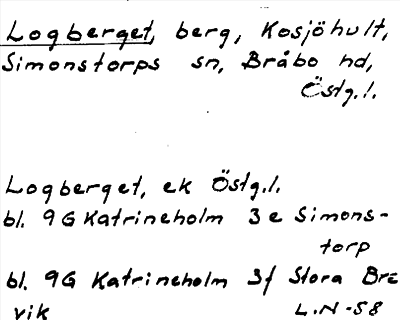 Logberget, berg, Kosjöhult,
Simonstorps sn, Bråbo hd,
Östg.l.
Logberget, ek Östg.l.
bl. 9G Katrineholm 3e Simons-
torp
bl. 9G Katrineholm 3f Stora Bre
vik L.N-58